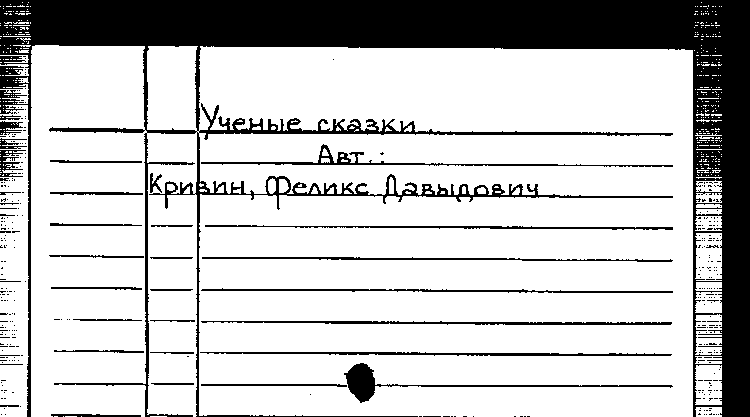 Ученые сказки.
Авт.:
Кривин, Феликс Давыдович